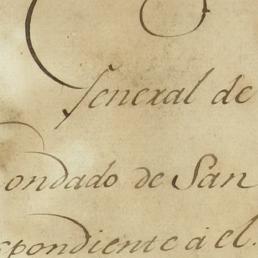 General de
ondado de San
spondiente á el.